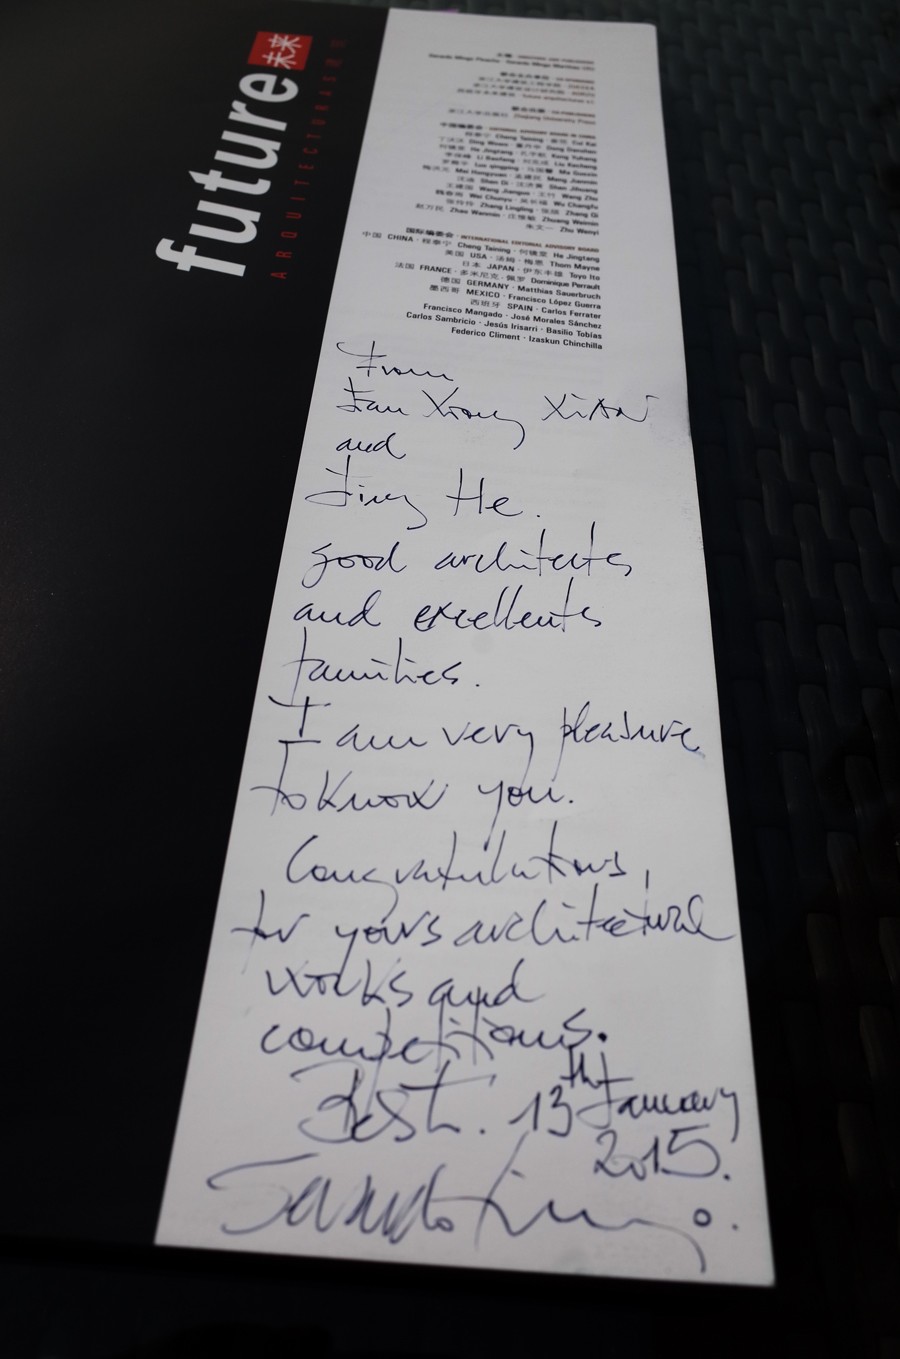 future 未来
ARQUITECTURAS
Zhejiang University Press
中国编委会 · EDITORIAL ADVISORY BOARD IN CHINA
Cheng Taining · Cui Kai
Ding Wowo · Dong Danshen
He Jingtang · Kong Yuhang
Li Baofeng · Liu Kecheng
Luo qingping · Ma Guoxin
Mei Hongyuan · Meng Jianmin
Shen Di · Shen Jihuang
Wang Jianguo · Wang Shu
Wei Chunyu · Wu Changfu
Zhang Lingling · Zhang Qi
Zhao Wanmin · Zhuang Weimin
朱文一 Zhu Wenyi
国际编委会 · INTERNATIONAL EDITORIAL ADVISORY BOARD
中国 CHINA · 程泰宁 Cheng Taining · 何镜堂 He Jingtang
美国 USA · 汤姆 · 梅恩 Thom Mayne
日本 JAPAN · 伊东丰雄 Toyo Ito
法国 FRANCE · 多米尼克 · 佩罗 Dominique Perrault
德国 GERMANY · Matthias Sauerbruch
墨西哥 MEXICO · Francisco López Guerra
西班牙 SPAIN · Carlos Ferrater
Francisco Mangado · José Morales Sánchez
Carlos Sambricio · Jesús Irisarri · Basilio Tobías
Federico Climent · Izaskun Chinchilla
From
Xiong XiAN
and
Jing He.
good architects
and excellents
families.
I am very pleasure
to know you.
Congratulations,
for yours architectural
works and
competitions.
Best. 13th January
2015.